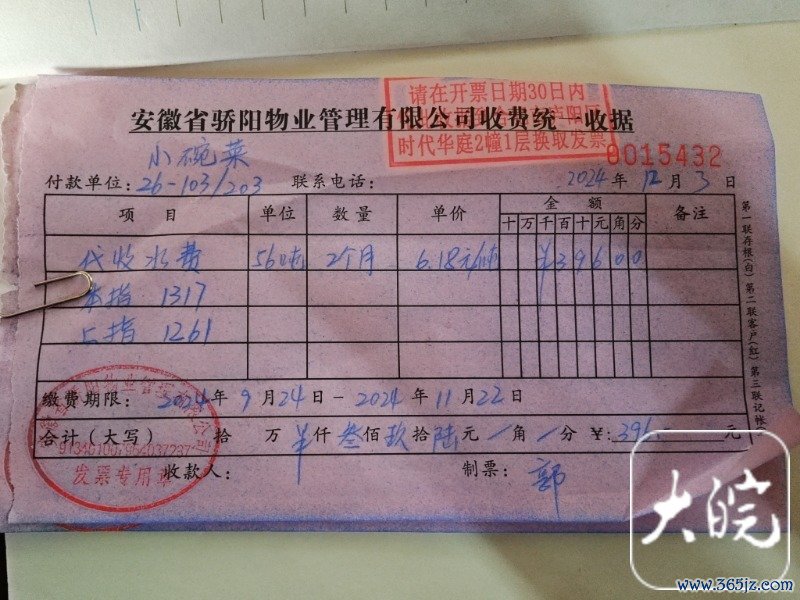 请在开票日期30日内
时代华庭2幢1层换取发票
安徽省骄阳物业管理有限公司收费统一收据
0015432
小碗菜
付款单位：26-103/203 联系电话： 2024年12月3日
项目 单位 数量 单价 金额 备注
十万千百十元角分
代收水费 56吨 2个月 6.18元/吨 ¥39600
本指 1317
上指 1261
缴费期限： 2024年9月24日-2024年11月22日
合计（大写） 拾 万 ¥仟叁佰玖拾陆元/角/分 ¥：396 元
收款人： 制票：郭
发票专用章
第一联存根(白) 第二联客户(红) 第三联记帐
大皖
www.365jz.com